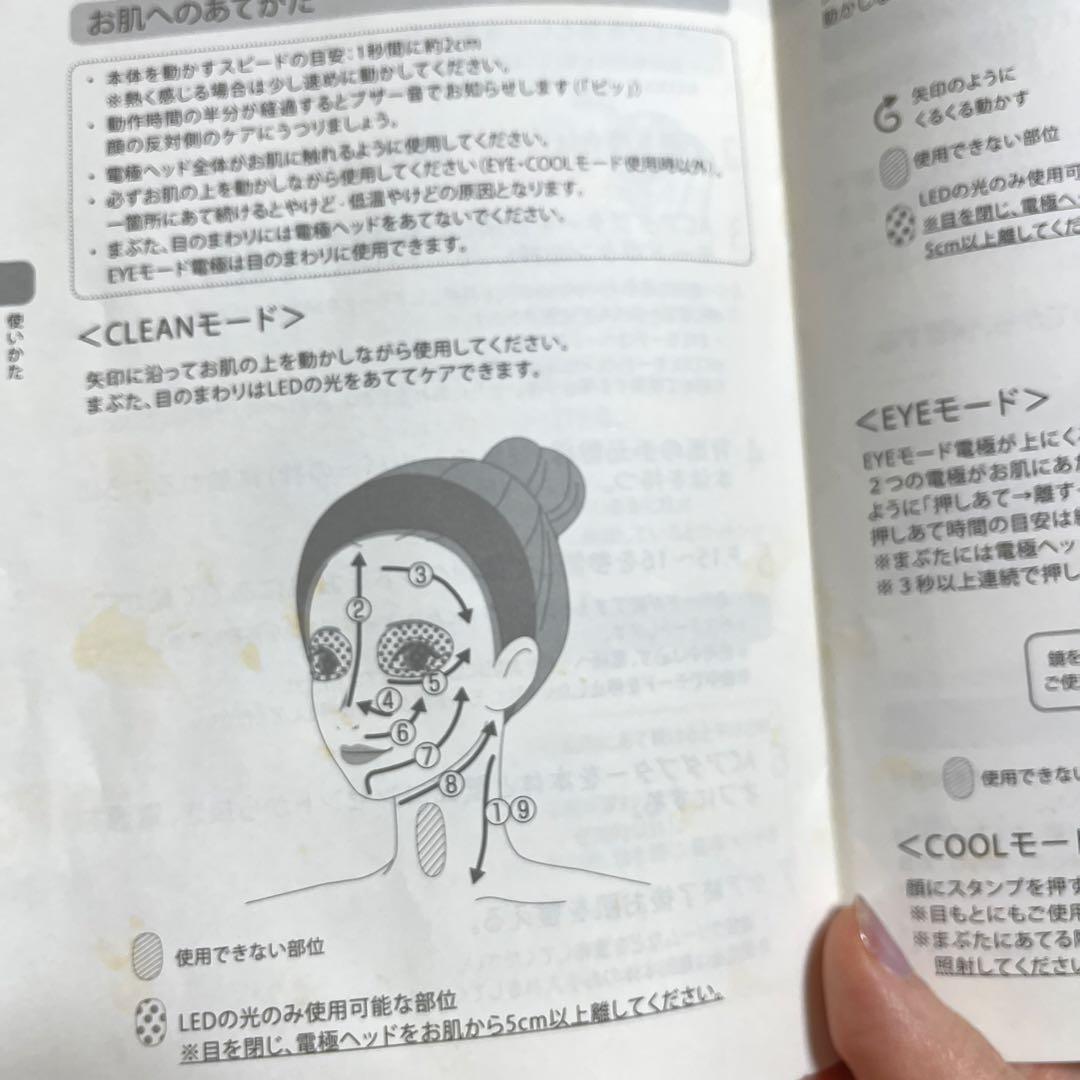 お肌へのあてかた
・本体を動かすスピードの目安：1秒間に約2cm
※熱く感じる場合は少し速めに動かしてください。
・動作時間の半分が経過するとブザー音でお知らせします(「ピッ」)
顔の反対側のケアにうつりましょう。
・電極ヘッド全体がお肌に触れるように使用してください(EYE・COOLモード使用時以外)。
・必ずお肌の上を動かしながら使用してください。
一箇所にあて続けるとやけど・低温やけどの原因となります。
・まぶた、目のまわりには電極ヘッドをあてないでください。
EYEモード電極は目のまわりに使用できます。
使いかた
<CLEANモード>
矢印に沿ってお肌の上を動かしながら使用してください。
まぶた、目のまわりはLEDの光をあててケアできます。
③
②
⑤
④
⑥
⑦
⑧
①⑨
使用できない部位
LEDの光のみ使用可能な部位
※目を閉じ、電極ヘッドをお肌から5cm以上離してください。
矢印のように
くるくる動かす
使用できない部位
LEDの光のみ使用可
※目を閉じ、電極ヘ
5cm以上離してくだ
<EYEモード>
EYEモード電極が上にく
2つの電極がお肌にあた
ように「押しあて→離す
押しあて時間の目安は
※まぶたには電極ヘッ
※3秒以上連続で押し
鏡を
ご使
使用できない
<COOLモード
顔にスタンプを押す
※目もとにもご使用
※まぶたにあてる
照射してください